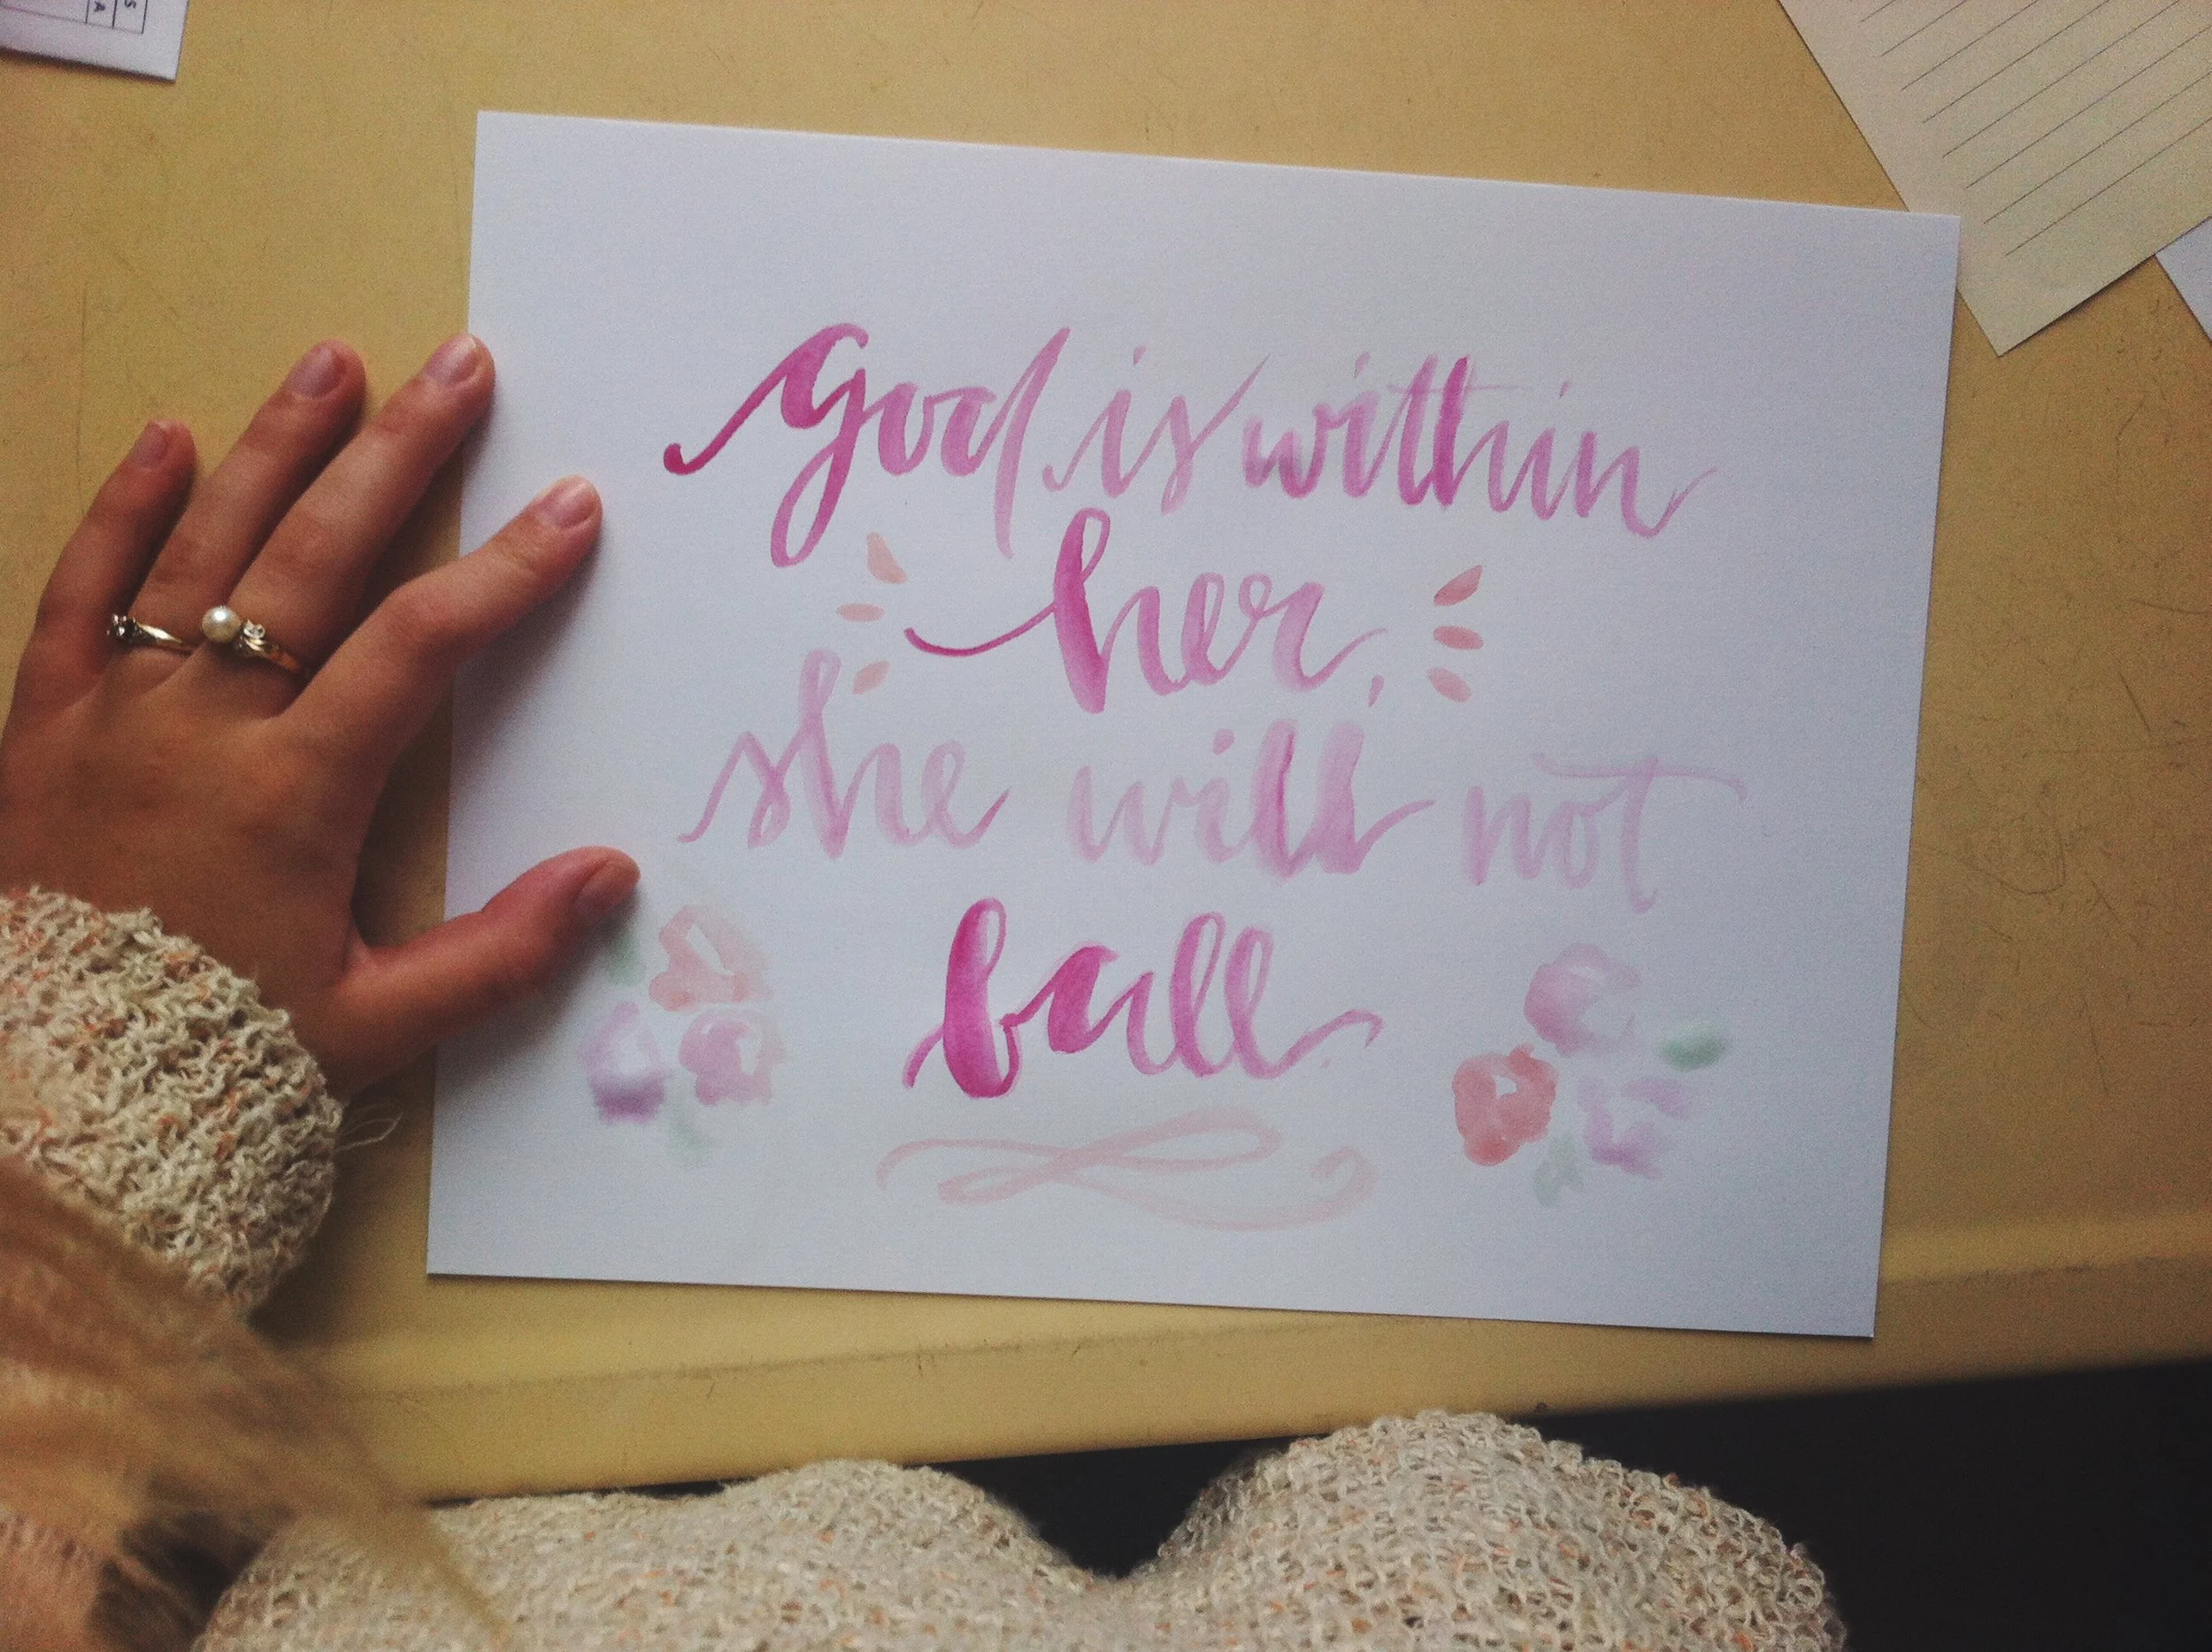 god is within
her,
she will not
fall.